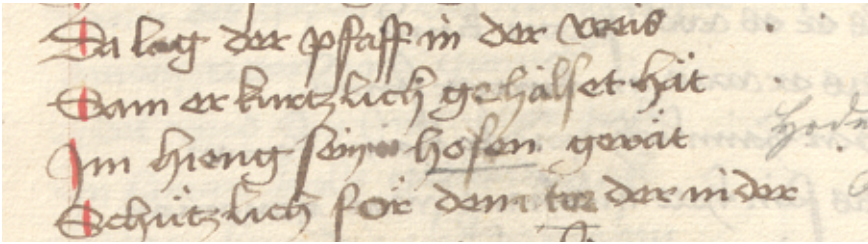 Da lag der pfaff in der weis
Sam er kurtzlich gehalset hät
Im hieng sein hosen gerät
Schützlich för dem der nider